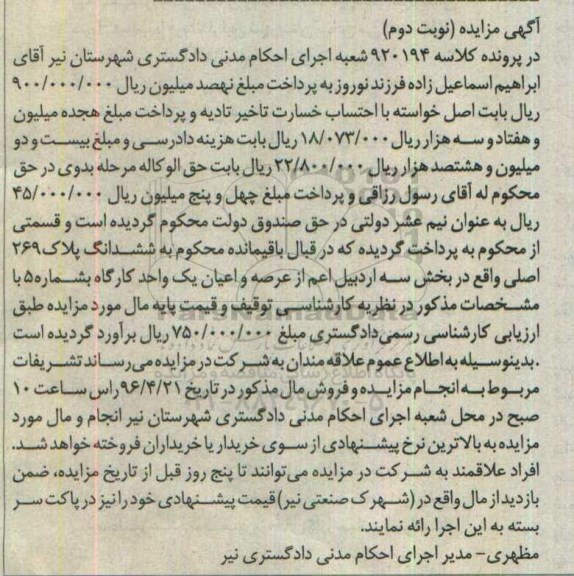 آگهی مزایده (نوبت دوم)
در پرونده کلاسه ۹۲۰۱۹۴ شعبه اجرای احکام مدنی دادگستری شهرستان نیر آقای
ابراهیم اسماعیل زاده فرزند نوروز به پرداخت مبلغ نهصد میلیون ریال ۹۰۰/۰۰۰/۰۰۰
ریال بابت اصل خواسته با احتساب خسارت تاخیر تادیه و پرداخت مبلغ هجده میلیون
و هفتاد و سه هزار ریال ۱۸/۰۷۳/۰۰۰ ریال بابت هزینه دادرسی و مبلغ بیست و دو
میلیون و هشتصد هزار ریال ۲۲/۸۰۰/۰۰۰ ریال بابت حق الوکاله مرحله بدوی در حق
محکوم له آقای رسول رزاقی و پرداخت مبلغ چهل و پنج میلیون ریال ۴۵/۰۰۰/۰۰۰
ریال به عنوان نیم عشر دولتی در حق صندوق دولت محکوم گردیده است و قسمتی
از محکوم به پرداخت گردیده که در قبال باقیمانده محکوم به ششدانگ پلاک ۲۶۹
اصلی واقع در بخش سه اردبیل اعم از عرصه و اعیان یک واحد کارگاه بشماره ۵ با
مشخصات مذکور در نظریه کارشناسی توقیف و قیمت پایه مال مورد مزایده طبق
ارزیابی کارشناسی رسمی دادگستری مبلغ ۷۵۰/۰۰۰/۰۰۰ ریال برآورد گردیده است
.بدینوسیله به اطلاع عموم علاقه مندان به شرکت در مزایده می رساند تشریفات
مربوط به انجام مزایده و فروش مال مذکور در تاریخ ۹۶/۴/۲۱ راس ساعت ۱۰
صبح در محل شعبه اجرای احکام مدنی دادگستری شهرستان نیر انجام و مال مورد
مزایده به بالاترین نرخ پیشنهادی از سوی خریدار یا خریداران فروخته خواهد شد.
افراد علاقمند به شرکت در مزایده می توانند تا پنج روز قبل از تاریخ مزایده، ضمن
بازدید از مال واقع در (شهرک صنعتی نیر) قیمت پیشنهادی خود را نیز در پاکت سر
بسته به این اجرا رائه نمایند.
مظهری- مدیر اجرای احکام مدنی دادگستری نیر